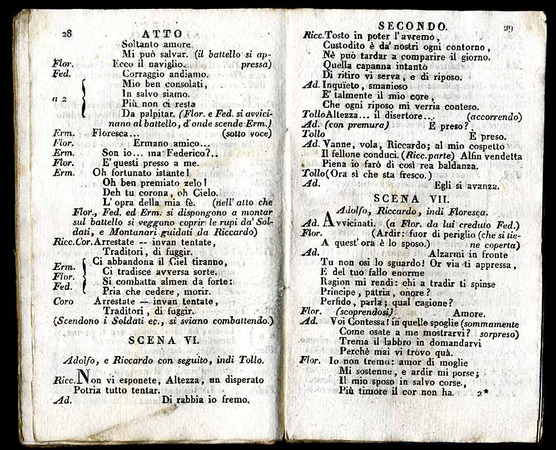 28 ATTO
Soltanto amore
Mi può salvar. (il battello si ap-
Flor. Ecco il naviglio. pressa)
Fed. Corraggio andiamo.
Mio ben consolati,
In salvo siamo.
a 2 Più non ci resta
Da palpitar. (Flor. e Fed. si avvici-
nano al battello, d'onde scende Erm.)
Erm. Floresca... (sotto voce)
Flor. Ermano amico...
Erm. Son io... ma Federico?..
Flor. E' questi presso a me.
Erm. Oh fortunato istante!
Oh ben premiato zelo!
Deh tu corona, oh Cielo.
L'opra della mia fè. (nell'atto che
Flor., Fed. ed Erm. si dispongono a montar
sul battello si veggono coprir le rupi da' Sol-
dati, e Montanari guidati da Riccardo)
Ricc. Cor. Arrestate -- invan tentate,
Traditori, di fuggir.
Erm. Ci abbandona il Ciel tiranno,
Flor. Ci tradisce avversa sorte.
Fed. Si combatta almen da forte:
Pria che cedere, morir.
Coro Arrestate -- invan tentate,
Traditori, di fuggir.
(Scendono i Soldati ec., si sviano combattendo.)
SCENA VI.
Adolfo, e Riccardo con seguito, indi Tollo.
Ricc. Non vi esponete, Altezza, un disperato
Potria tutto tentar.
Ad. Di rabbia io fremo.
SECONDO. 29
Ricc. Tosto in poter l'avremo,
Custodito è da' nostri ogni contorno,
Nè può tardar a comparire il giorno.
Quella capanna intanto
Di ritiro vi serva, e di riposo.
Ad. Inquieto, smanioso
E' talmente il mio core,
Che ogni riposo mi verria conteso.
Tollo Altezza... il disertore... (accorrendo)
Ad. (con premura) E preso?
Tollo E preso.
Ad. Vanne, vola, Riccardo; al mio cospetto
Il fellone conduci. (Ricc. parte) Alfin vendetta
Piena io farò di così rea baldanza.
Tollo (Ora sì che sta fresco.)
Ad. Egli si avanza.
SCENA VII.
Adolfo, Riccardo, indi Floresca.
Ad. Avvicinati. (a Flor. da lui creduto Fed.)
Flor. (Ardir: fuor di periglio (che si tie-
A quest'ora è lo sposo.) ne coperta)
Ad. Alzarmi in fronte
Tu non osi lo sguardo! Or via ti appressa,
E del tuo fallo enorme
Ragion mi rendi: chi a tradir ti spinse
Principe, patria, onore?
Perfido, parla; qual cagione?
Flor. (scoprendosi) Amore.
Ad. Voi Contessa! in quelle spoglie (sommamente
Come osate a me mostrarvi? sorpreso)
Trema il labbro in domandarvi
Perchè mai vi trovo quà.
Flor. Io non tremo: amor di moglie
Mi sostenne, e ardir mi porse;
Il mio sposo in salvo corse,
Più timore il cor non ha. 2*